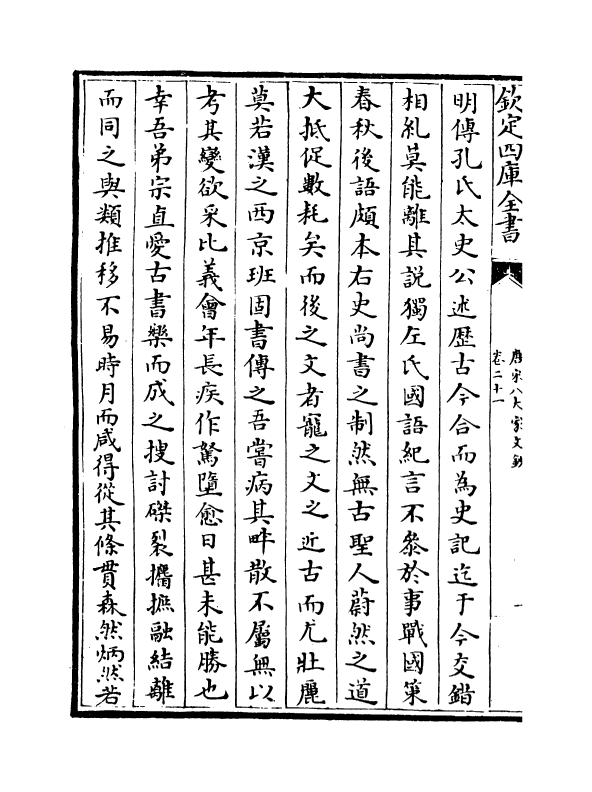 欽定四庫全書
唐宋八大家文鈔
卷二十一
明傳孔氏太史公述歷古今合而為史記迄于今交錯
相糺莫能離其說獨左氏國語紀言不叅於事戰國策
春秋後語頗本右史尚書之制然無古聖人蔚然之道
大抵促數耗矣而後之文者寵之文之近古而尤壯麗
莫若漢之西京班固書傳之吾嘗病其畔散不屬無以
考其變欲采比義會年長疾作駑墮愈日甚未能勝也
幸吾弟宗直愛古書樂而成之搜討磔裂攟摭融結離
而同之與類推移不易時月而咸得從其條貫森然炳然若